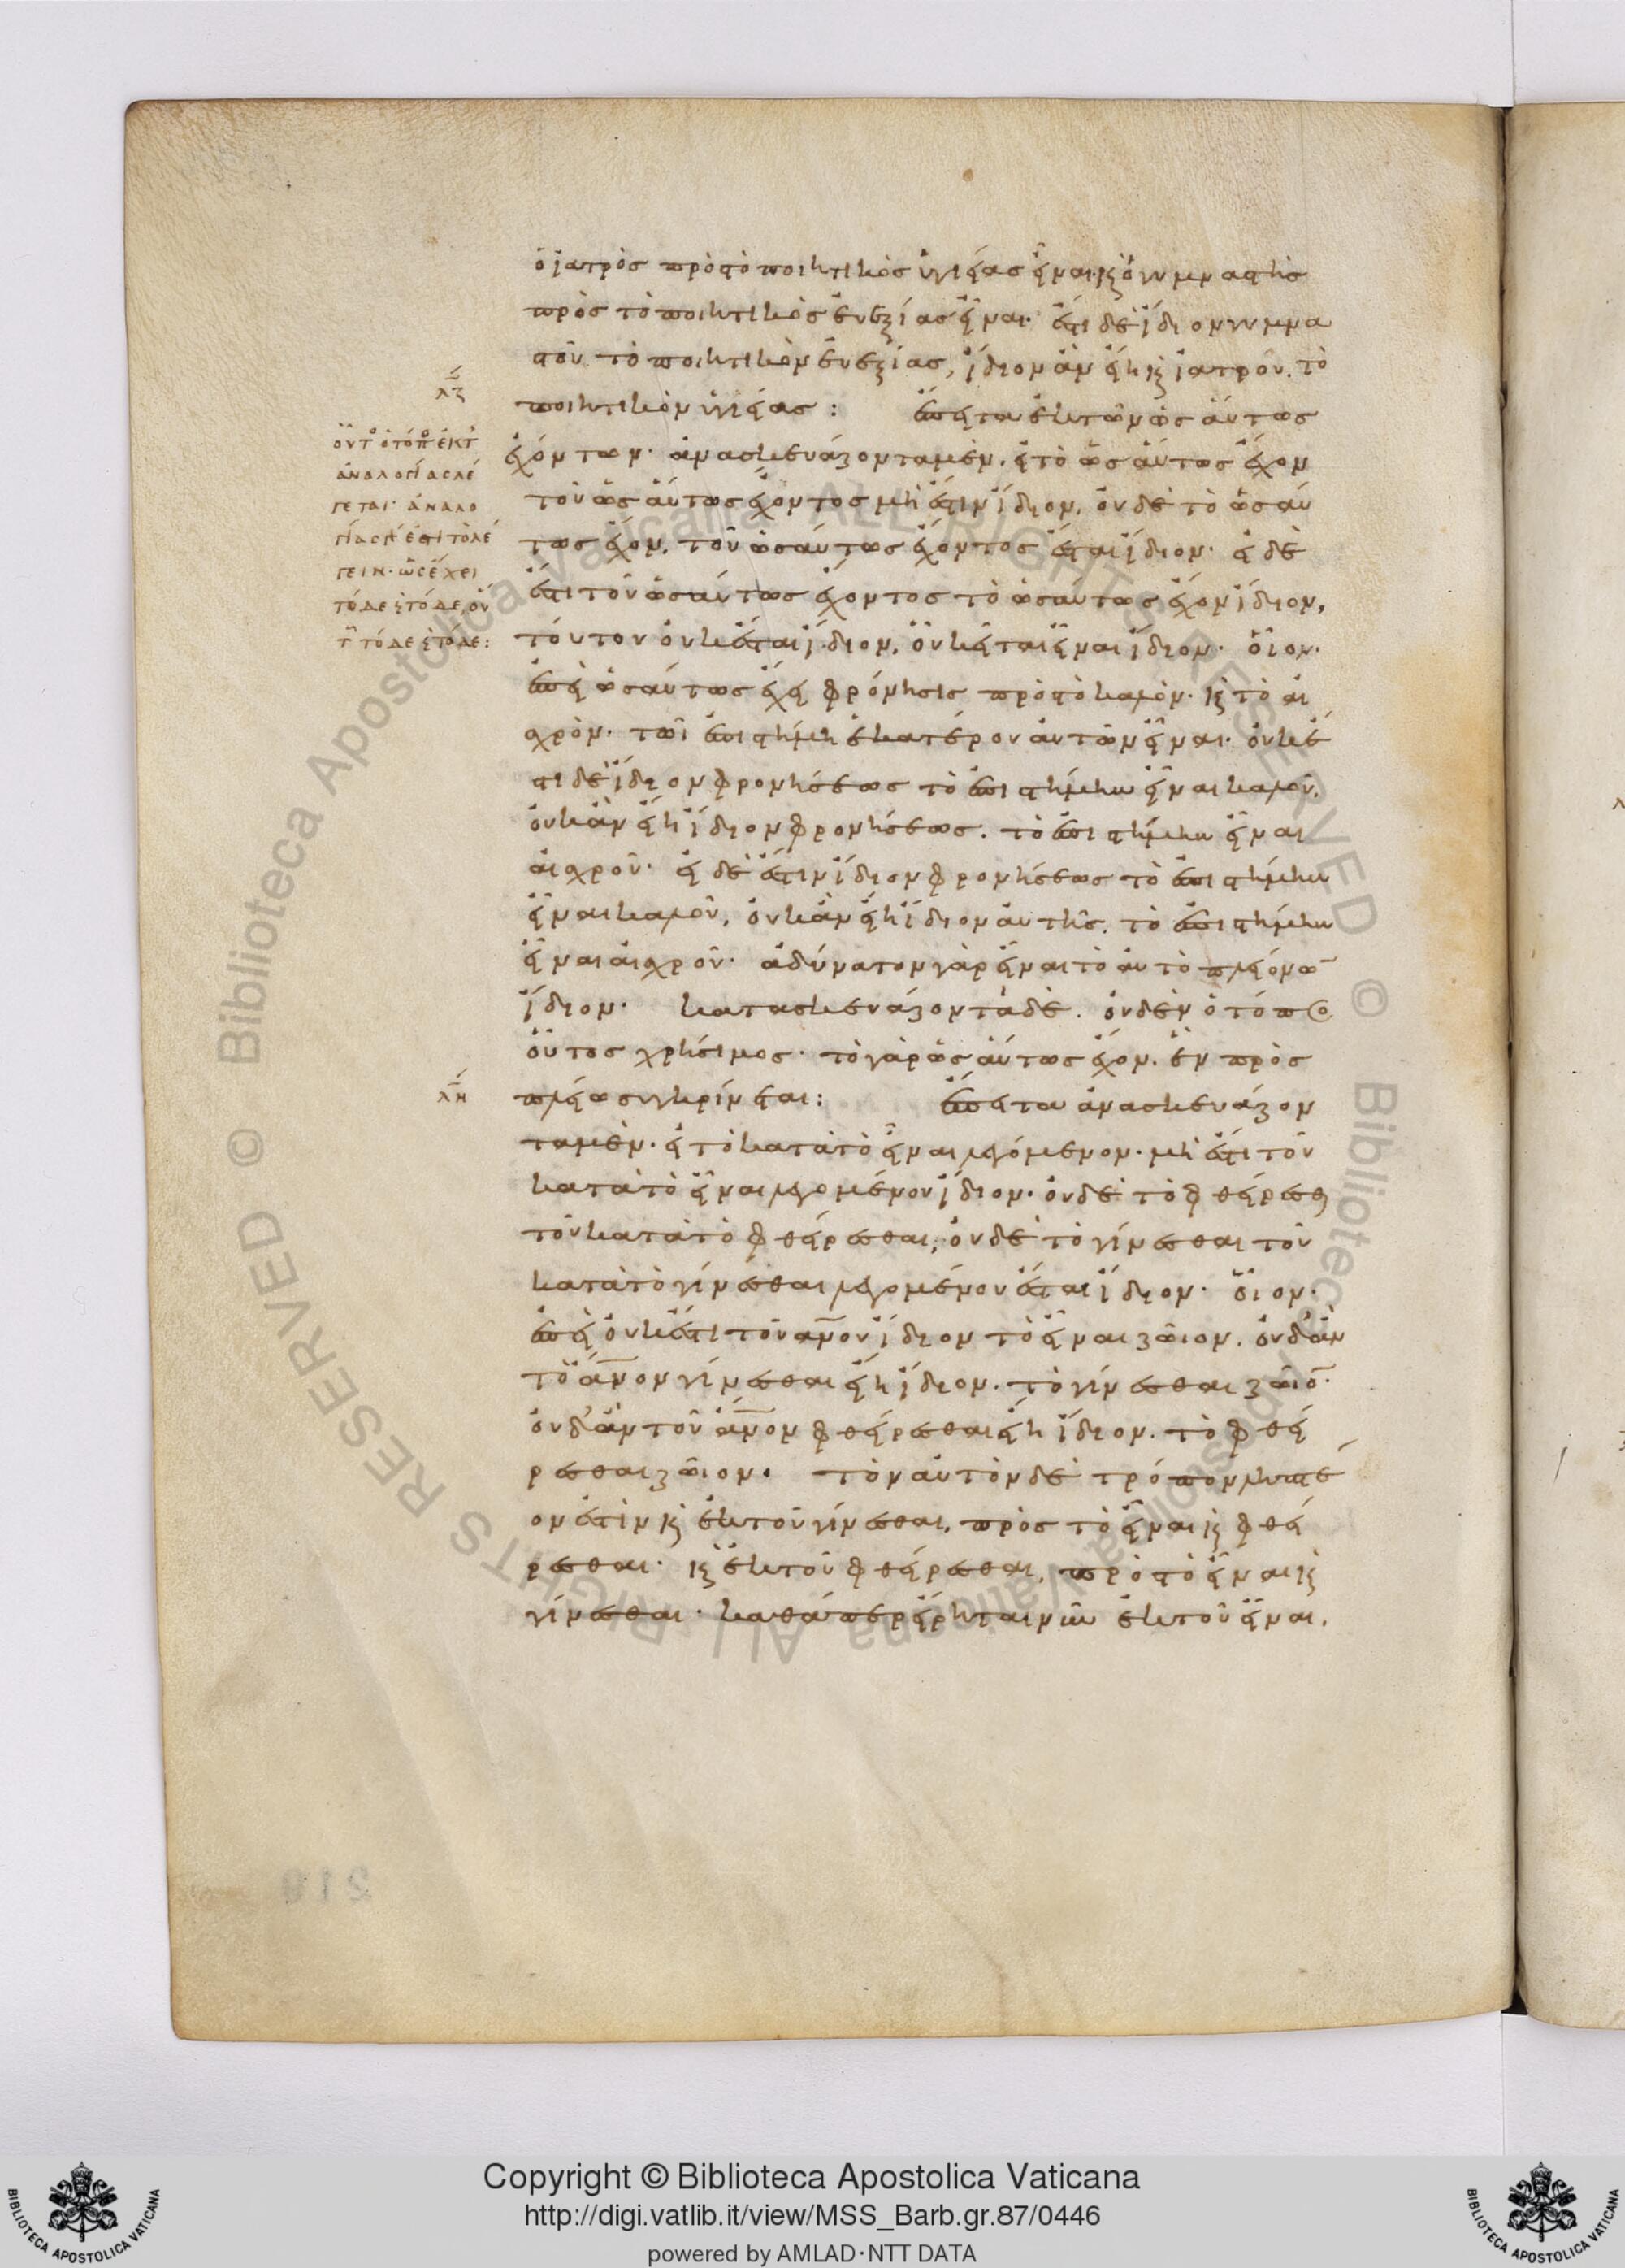 ὁ ἰατρὸς πρὸς τὸ ποιητικὸς ὑγιείας εἶναι· καὶ ὁ γυμναστὴς
πρὸς τὸ ποιητικὸς εὐεξίας εἶναι· ἔστι δὲ ἴδιον γυμνα
στοῦ τὸ ποιητικὸν εὐεξίας, ἴδιον ἂν εἴη καὶ ἰατροῦ. τὸ
λζ
ποιητικὸν ὑγιείας : ἔπειτα ἐκ τῶν ὡς αὔτως
οὗτος ὁ τόπος ἐκ τῆς
ἀναλογίας λέ
γεται· ἀναλο
γίας γάρ ἐστι τὸ λέ
γειν· ὡς ἔχει
τόδε πρὸς τόδε, οὕ
τως τόδε πρὸς τόδε :
ἐχόντων· ἀνασκευάζοντα μὲν. εἰ τὸ ὡς αὔτως ἔχον
τοῦ ὡς αὔτως ἔχοντος μή ἐστιν ἴδιον, οὐδὲ τὸ ὡσαύ
τως ἔχον, τοῦ ὡσαύτως ἔχοντος ἔσται ἴδιον· εἰ δὲ
ἔστι τοῦ ὡσαύτως ἔχοντος τὸ ὡσαύτως ἔχον ἴδιον,
τούτου οὐκ ἔσται ἴδιον, οὗ κεῖται εἶναι ἴδιον· οἷον·
ἐπεὶ ὡσαύτως ἔχει φρόνησις πρὸς τὸ καλὸν· καὶ τὸ αἰ
σχρὸν· τῶι ἐπιστήμη ἑκατέρου αὐτῶν εἶναι· οὐκ ἔ
στι δὲ ἴδιον φρονήσεως τὸ ἐπιστήμην εἶναι καλοῦ,
οὐκ ἂν εἴη ἴδιον φρονήσεως. τὸ ἐπιστήμην εἶναι
αἰσχροῦ· εἰ δέ ἐστιν ἴδιον φρονήσεως τὸ ἐπιστήμην
εἶναι καλοῦ, οὐκ ἂν εἴη ἴδιον αὐτῆς. τὸ ἐπιστήμην
εἶναι αἰσχροῦ· ἀδύνατον γὰρ εἶναι τὸ αὐτὸ πλειόνων
ἴδιον· κατασκευάζοντα δὲ. οὐδὲν ὁ τόπος
οὗτος χρήσιμος· τὸ γὰρ ὡς αὔτως ἔχον. ἓν πρὸς
λη
πλείω συγκρίνεται : ἔπειτα ἀνασκευάζον
τα μὲν· εἰ τὸ κατὰ τὸ εἶναι λεγόμενον· μή ἐστι τοῦ
κατὰ τὸ εἶναι λεγομένου ἴδιον· οὐδὲ τὸ φθείρεσθαι
τοῦ κατὰ τὸ φθείρεσθαι, οὐδὲ τὸ γίνεσθαι τοῦ
κατὰ τὸ γίνεσθαι λεγομένου ἔσται ἴδιον· οἷον·
ἐπεὶ οὐκ ἔστι τοῦ ἀν̅ου ἴδιον τὸ εἶναι ζῶιον, οὐδ' ἂν
τοῦ ἀν̅ου γίνεσθαι εἴη ἴδιον. τὸ γίνεσθαι ζῶιον·
οὐδ' ἂν τοῦ ἀν̅ου φθείρεσθαι εἴη ἴδιον. τὸ φθεί
ρεσθαι ζῶιον. τὸν αὐτὸν δὲ τρόπον ληπτέ
ον ἐστὶν καὶ ἐκ τοῦ γίνεσθαι, πρὸς τὸ εἶναι καὶ φθεί
ρεσθαι· καὶ ἐκ τοῦ φθείρεσθαι, πρὸς τὸ εἶναι καὶ
γίνεσθαι· καθάπερ εἴρηται νῦν ἐκ τοῦ εἶναι.
Copyright © Biblioteca Apostolica Vaticana
http://digi.vatlib.it/view/MSS_Barb.gr.87/0446
powered by AMLAD·NTT DATA